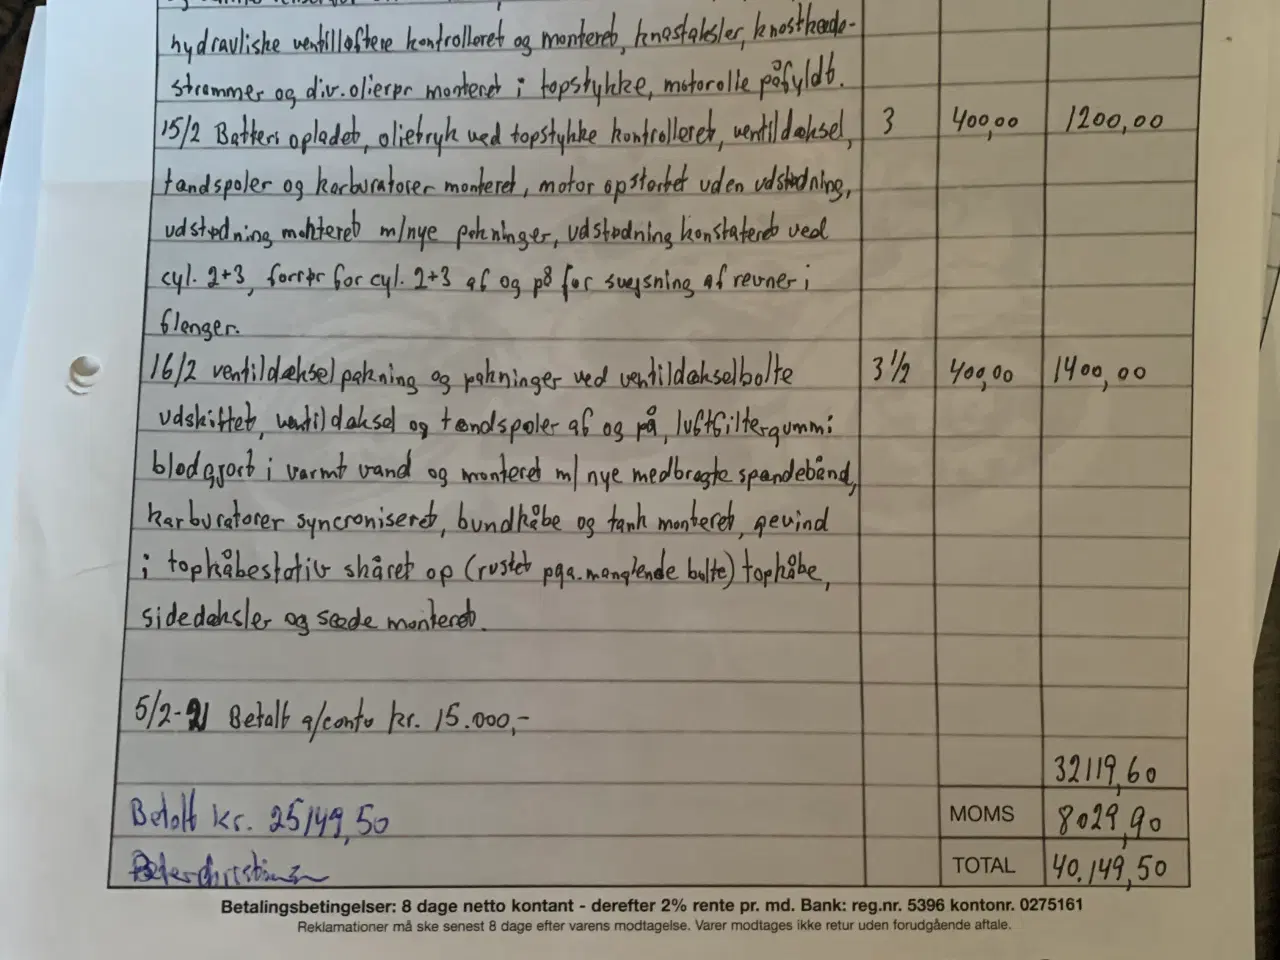 hydravliske ventilløftere kontrolleret og monteret, knastaksler, knastkæde-
strammer og div. olierør monteret i topstykke, motorolie påfyldt.
15/2 Batteri opladet, olietryk ved topstykke kontrolleret, ventildæksel, 3 400,00 1200,00
tændspoler og karburatorer monteret, motor opstartet uden udstødning,
udstødning monteret m/nye pakninger, udstødning konstateret ved
cyl. 2+3, forrør for cyl. 2+3 af og på for svejsning af revner i
flanger.
16/2 ventildækselpakning og pakninger ved ventildækselbolte 3 1/2 400,00 1400,00
udskiftet, ventildæksel og tændspoler af og på, luftfiltergummi
blødgjort i varmt vand og monteret m/ nye medbragte spændebånd,
karburatorer syncroniseret, bundkåbe og tank monteret, gevind
i topkåbestativ skåret op (rustet pga. manglende bolte) topkåbe,
sidedæksler og sæde monteret.
5/2-21 Betalt a/conto kr. 15.000,-
32119,60
Betalt kr. 25149,50 MOMS 8029,90
TOTAL 40.149,50
Betalingsbetingelser: 8 dage netto kontant - derefter 2% rente pr. md. Bank: reg.nr. 5396 kontonr. 0275161
Reklamationer må ske senest 8 dage efter varens modtagelse. Varer modtages ikke retur uden forudgående aftale.